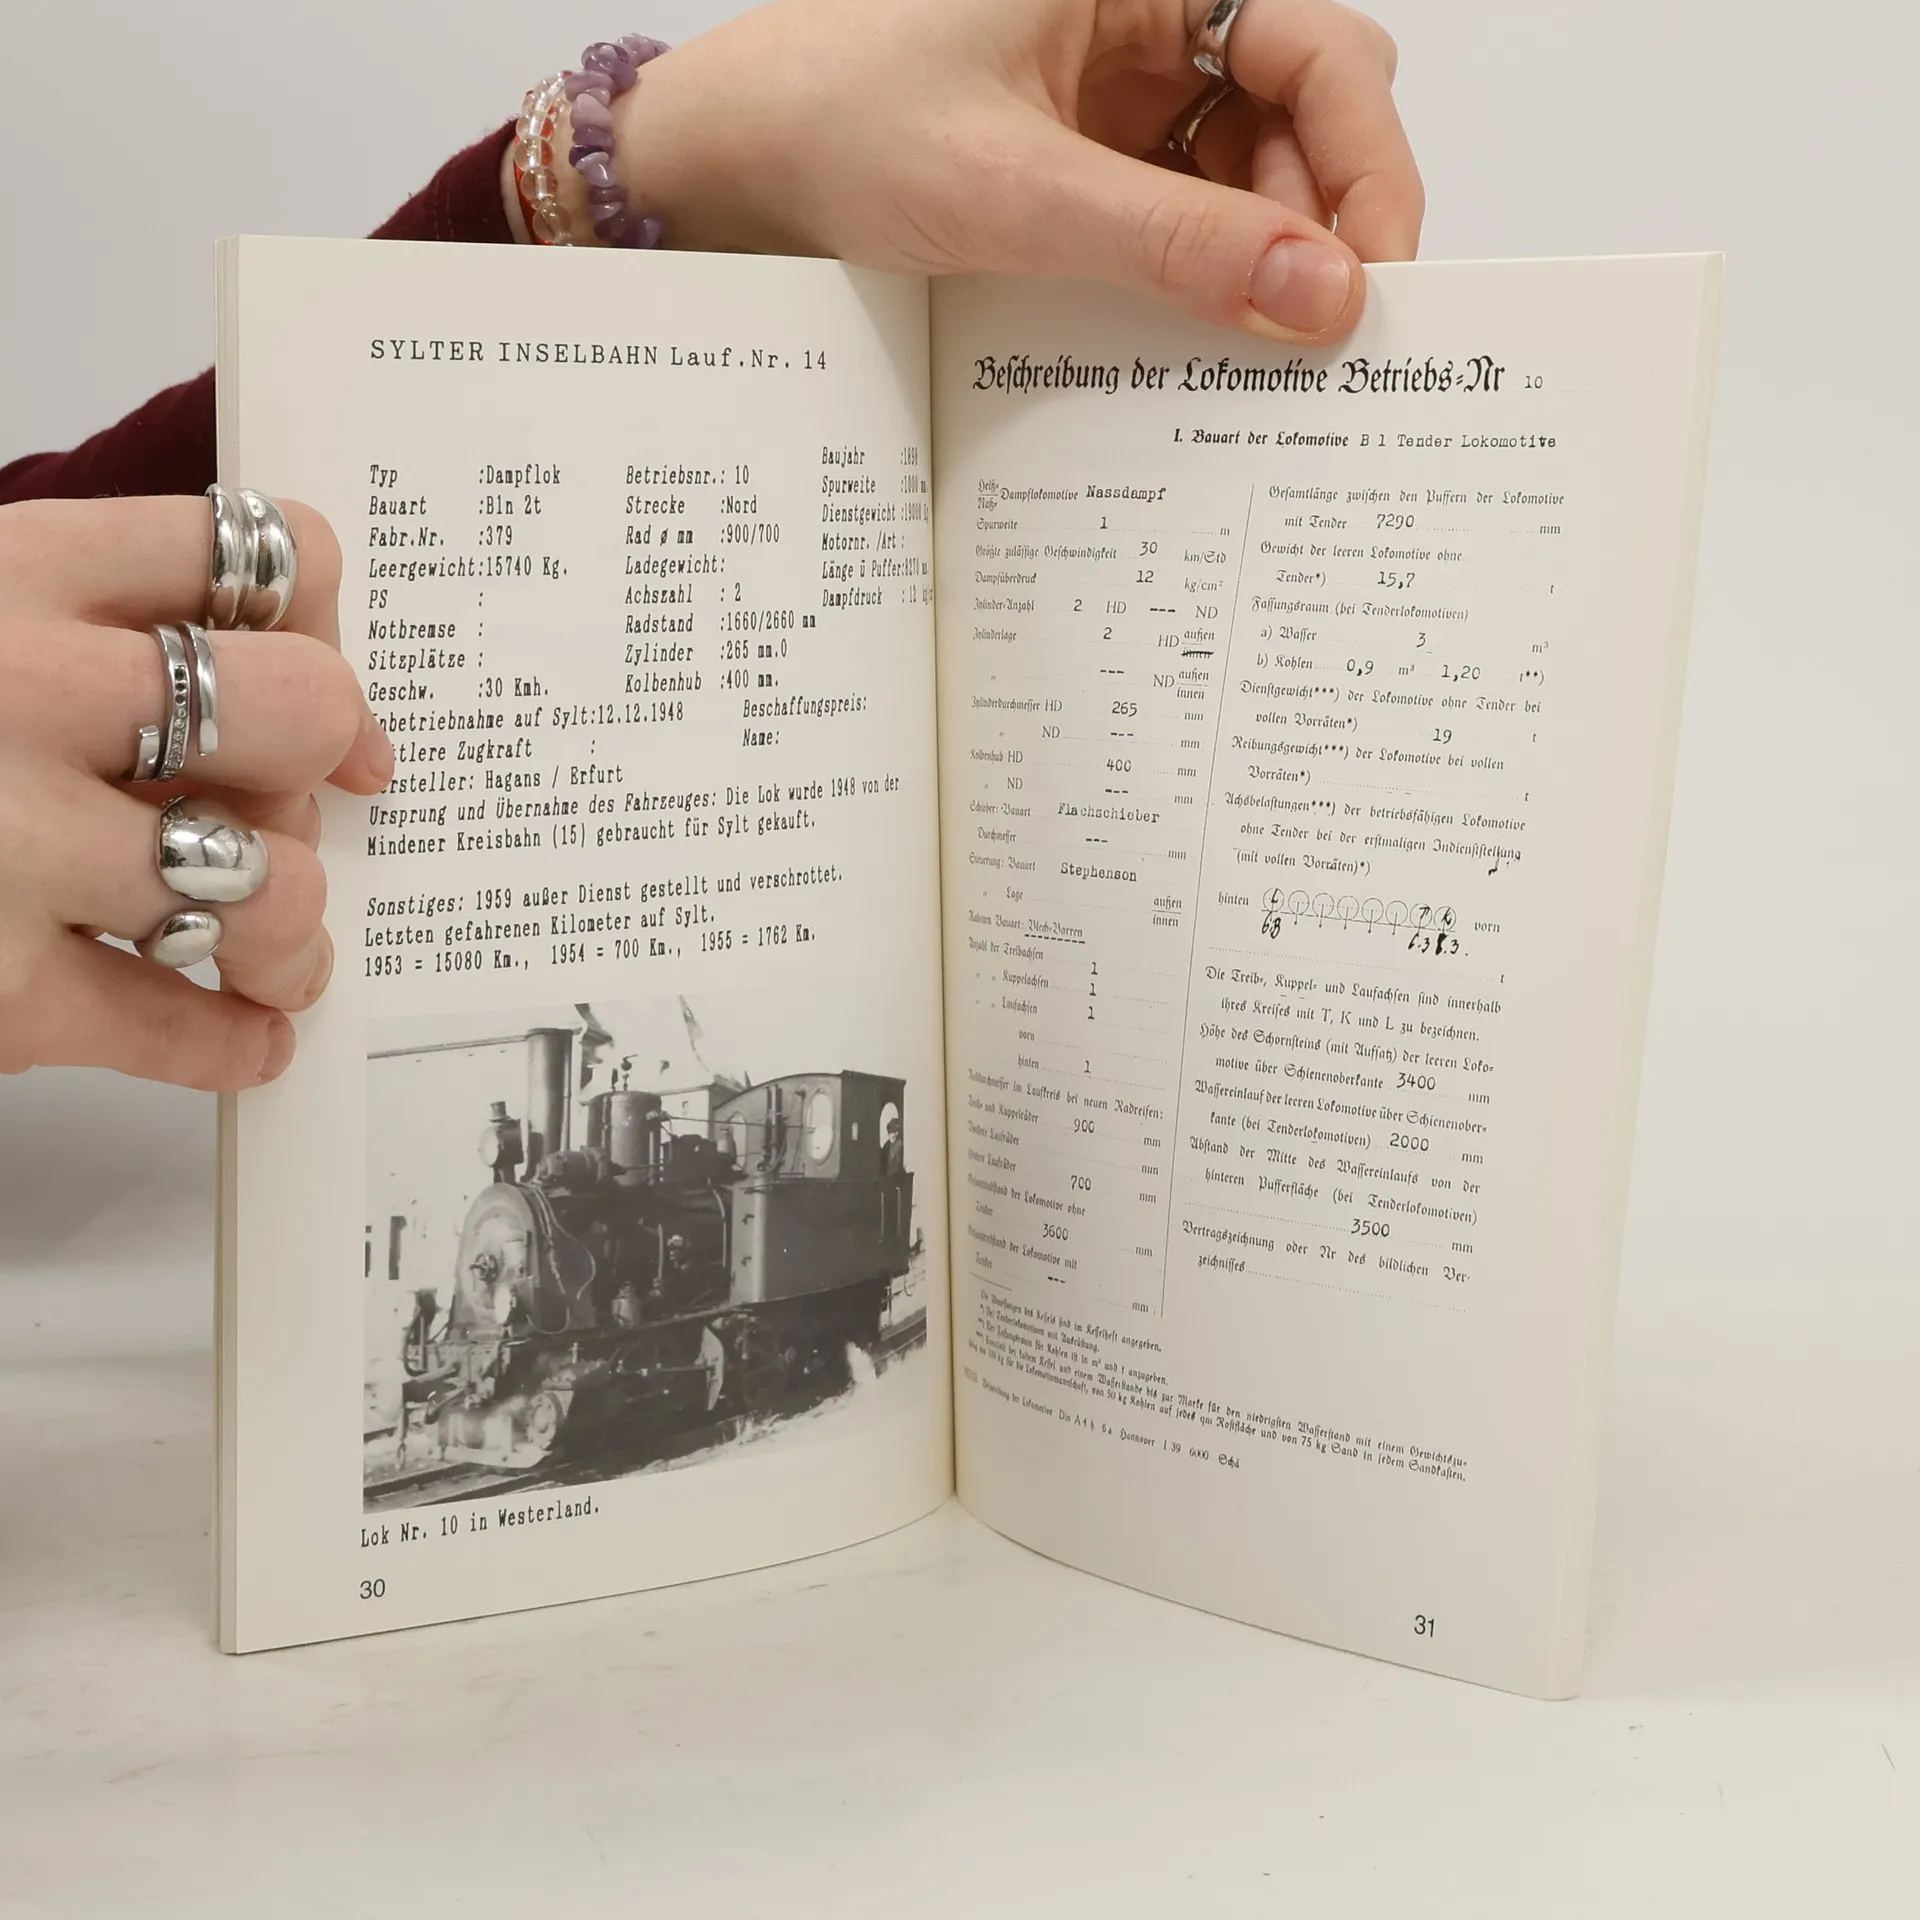 SYLTER INSELBAHN Lauf.Nr. 14
Typ :Dampflok Betriebsnr.: 10 Baujahr :1898
Bauart :B1n 2t Strecke :Nord Spurweite :1000 m
Fabr.Nr. :379 Rad ø mm :900/700 Dienstgewicht :19000
Leergewicht:15740 Kg. Ladegewicht: Motornr. /Art :
PS : Achszahl : 2 Länge ü Puffer:8270 m
Notbremse : Radstand :1660/2660 mm Dampfdruck : 12
Sitzplätze : Zylinder :265 mm.0
Geschw. :30 Kmh. Kolbenhub :400 mm.
nbetriebnahme auf Sylt:12.12.1948 Beschaffungspreis:
ttlere Zugkraft : Name:
ersteller: Hagans / Erfurt
Ursprung und Übernahme des Fahrzeuges: Die Lok wurde 1948 von der
Mindener Kreisbahn (15) gebraucht für Sylt gekauft.
Sonstiges: 1959 außer Dienst gestellt und verschrottet.
Letzten gefahrenen Kilometer auf Sylt.
1953 = 15080 Km., 1954 = 700 Km., 1955 = 1762 Km.
Lok Nr. 10 in Westerland.
30
Beschreibung der Lokomotive Betriebs-Nr 10
I. Bauart der Lokomotive B 1 Tender Lokomotive
Heiß-
Naß- Dampflokomotive Nassdampf
Spurweite 1 m
Größte zulässige Geschwindigkeit 30 km/Std
Dampfüberdruck 12 kg/cm²
Zylinder-Anzahl 2 HD --- ND
Zylinderlage 2 HD außen
innen
" --- ND außen
innen
Zylinderdurchmesser HD 265 mm
" ND --- mm
Kolbenhub HD 400 mm
" ND --- mm
Schieber: Bauart Flachschieber
Durchmesser --- mm
Steuerung: Bauart Stephenson
" Lage außen
innen
Rahmen Bauart: Blech-Barren
Anzahl der Treibachsen 1
" " Kuppelachsen 1
" " Laufachsen 1
vorn
hinten 1
Raddurchmesser im Laufkreis bei neuen Radreifen:
Treib- und Kuppelräder 900 mm
Vordere Laufräder mm
Hintere Laufräder 700 mm
Gesamtradstand der Lokomotive ohne
Tender 3600 mm
Gesamtradstand der Lokomotive mit
Tender --- mm
Gesamtlänge zwischen den Puffern der Lokomotive
mit Tender 7290 mm
Gewicht der leeren Lokomotive ohne
Tender*) 15,7 t
Fassungsraum (bei Tenderlokomotiven)
a) Wasser 3 m³
b) Kohlen 0,9 m³ 1,20 t**)
Dienstgewicht***) der Lokomotive ohne Tender bei
vollen Vorräten*) 19 t
Reibungsgewicht***) der Lokomotive bei vollen
Vorräten*) t
Achsbelastungen***) der betriebsfähigen Lokomotive
ohne Tender bei der erstmaligen Indienststellung
(mit vollen Vorräten)*)
hinten L T K vorn
6.3 6.3 6.3. t
Die Treib-, Kuppel- und Laufachsen sind innerhalb
ihres Kreises mit T, K und L zu bezeichnen.
Höhe des Schornsteins (mit Aufsatz) der leeren Loko-
motive über Schienenoberkante 3400 mm
Wassereinlauf der leeren Lokomotive über Schienenober-
kante (bei Tenderlokomotiven) 2000 mm
Abstand der Mitte des Wassereinlaufs von der
hinteren Pufferfläche (bei Tenderlokomotiven)
3500 mm
Vertragszeichnung oder Nr des bildlichen Ver-
zeichnisses
Die Abmessungen des Kessels sind im Kesselheft angegeben.
*) Bei Tenderlokomotiven mit Ausrüstung.
**) Der Fassungsraum für Kohlen ist in m³ und t anzugeben.
***) Ermittelt bei kaltem Kessel und einem Wasserstande bis zur Marke für den niedrigsten Wasserstand mit einem Gewichtszu-
schlag von 100 kg für die Lokomotivmannschaft, von 50 kg Kohlen auf jedes qm Rostfläche und von 75 kg Sand in jedem Sandkasten.
Beschreibung der Lokomotive Din A 4 h 6a Hannover I 39 6000 Schä
31